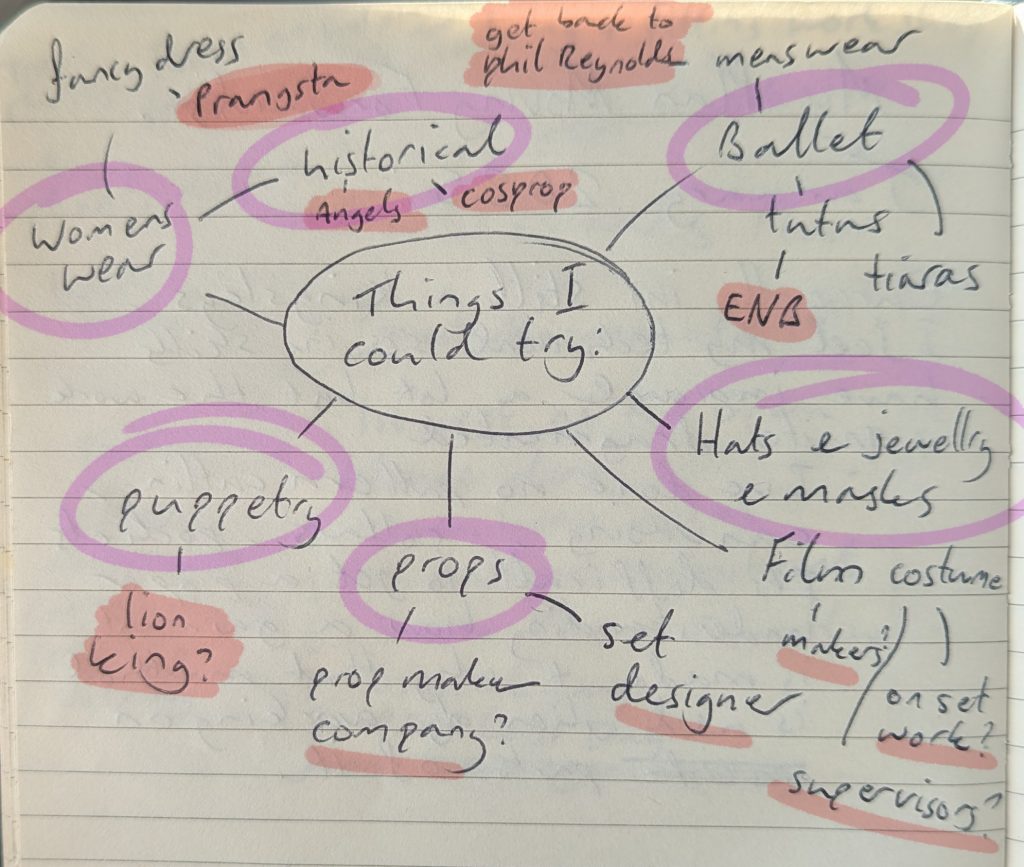 fancy dress
Prangsta
get back to
phil Reynolds
menswear
historical
Angels
cosprop
Ballet
tutus
tiaras
ENB
Womens
wear
Things I
could try:
Hats e jewellry
e masks
puppetry
lion
king?
props
prop maker
company?
set
designer
Film costume
makers?
on set
work?
supervisory?